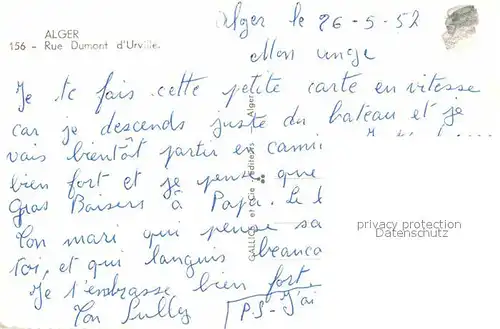 ALGER
156 - Rue Dumont d'Urville.
Alger le 26-5-52
Mon ange
Je te fais cette petite carte en vitesse
car je descends juste du bateau et je
vais bientôt partir en cami
bien fort et je pense que
Gros Baisers à Papa. Le t
Ton mari qui pense sa
toi, et qui languis beauco
Je t'embrasse bien fort.
Ton Sully
P.S - J'ai
GALLICE et Cie éditeurs Alger
privacy protection
Datenschutz